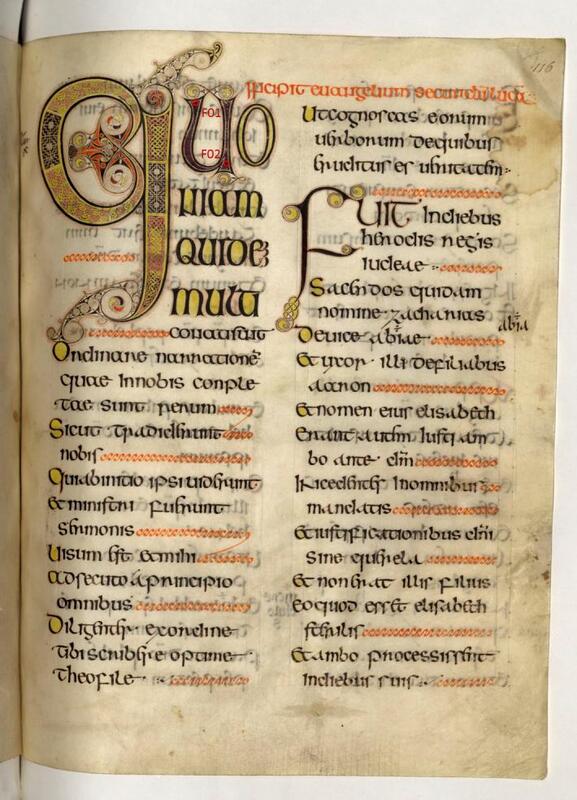 116
Incipit euangelium secundu luca
F01
F02
Quo
niam
quide
multi
conati sunt
Ordinare narratione
quae in nobis conple
tae sunt rerum
Sicut tradiderunt
nobis
Qui ab initio ipsi uiderunt
Et ministri fuerunt
sermonis
Uisum est et mihi
adsecuto a principio
omnibus
Diligenter ex ordine
tibi scribere optime
theofile
Ut cognoscas eorum
uerborum de quibus
eruditus es ueritatem
Fuit in diebus
herodis regis
iudeae
Sacerdos quidam
nomine zacharias
De uice abiae
abia
Et uxor illi de filiabus
aaron
Et nomen eius elisabeth
Erant autem iusti am
bo ante dm
Incedentes in omnibus
mandatis
Et iustificationibus dni
sine querela
Et non erat illis filius
eo quod esset elisabeth
sterilis
Et ambo processissent
in diebus suis